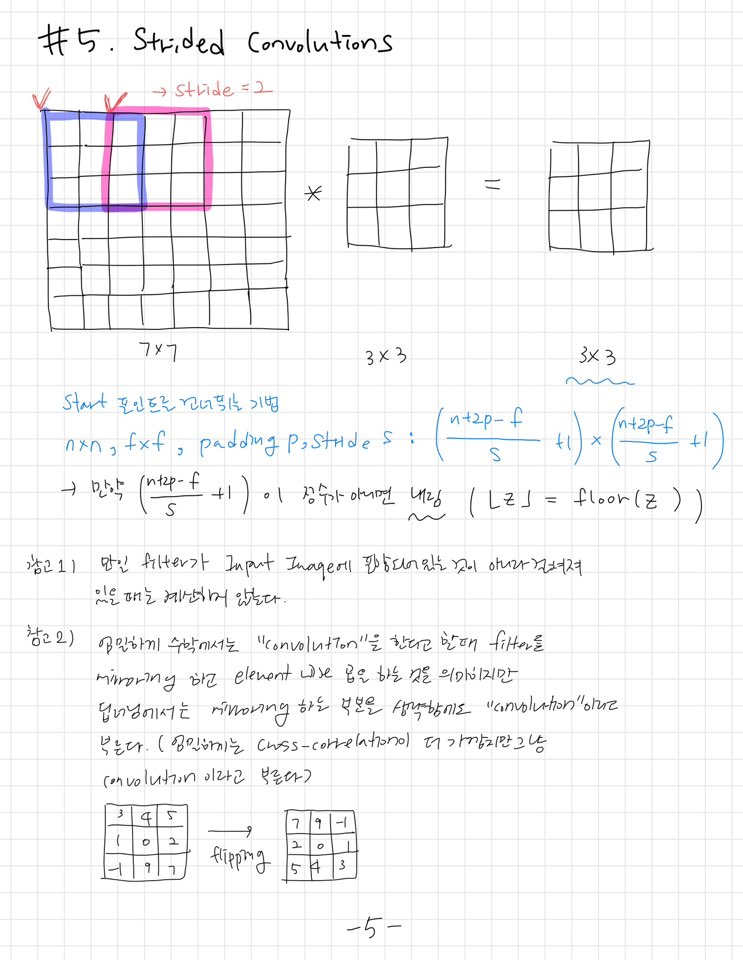 #5. Strided Convolutions
→ stride = 2
* =
7×7 3×3 3×3
Start 포인트를 건너뛰는 기법
n×n, f×f, padding p, stride s : ((n+2p-f)/s +1) × ((n+2p-f)/s +1)
→ 만약 ((n+2p-f)/s +1) 이 정수가 아니면 내림 (⌊z⌋ = floor(z))
참고1) 만일 filter가 Input Image에 포함되어 있는 것이 아니라 걸쳐져
있을 때는 계산하지 않는다.
참고2) 엄밀하게 수학에서는 "convolution"을 한다고 할때 filter를
mirroring 하고 element wise 곱을 하는 것을 의미하지만
딥러닝에서는 mirroring 하는 부분을 생략함에도 "convolution"이라고
부른다. (엄밀하게는 cross-correlation이 더 가깝지만 그냥
convolution 이라고 부른다)
3 4 5 7 9 -1
1 0 2 → 2 0 1
-1 9 7 flipping 5 4 3
-5-